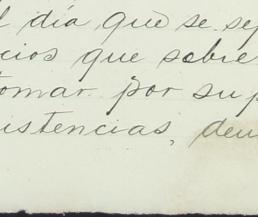 l día que se sep
cios que sobre
tomar por su p
istencias, deu